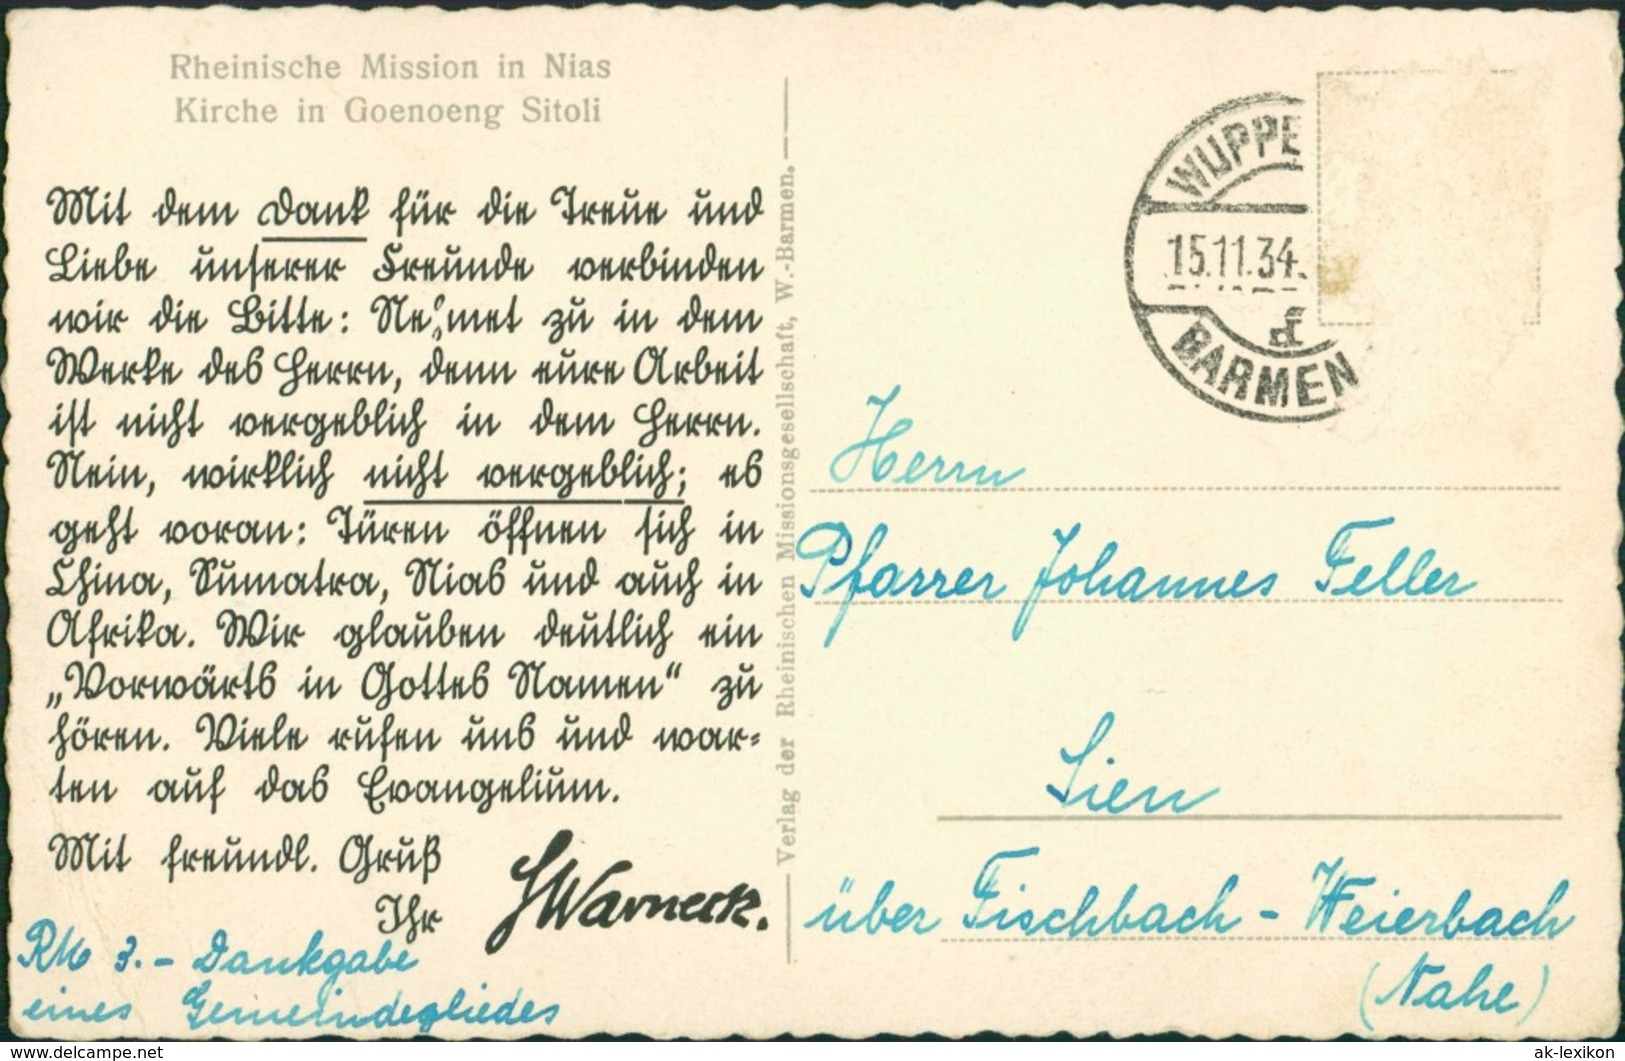 Rheinische Mission in Nias
Kirche in Goenoeng Sitoli
Mit dem Dank für die Treue und
Liebe unserer Freunde verbinden
wir die Bitte: Nehmet zu in dem
Werke des Herrn, denn eure Arbeit
ist nicht vergeblich in dem Herrn.
Nein, wirklich nicht vergeblich; es
geht voran: Türen öffnen sich in
China, Sumatra, Nias und auch in
Afrika. Wir glauben deutlich ein
„Vorwärts in Gottes Namen“ zu
hören. Viele rufen uns und war-
ten auf das Evangelium.
Mit freundl. Gruß
Ihr
JWarneck.
RM 3.- Dankgabe
eines Gemeindegliedes
Verlag der Rheinischen Missionsgesellschaft, W.-Barmen.
WUPPE
15.11.34.
BARMEN
Herrn
Pfarrer Johannes Feller
Sien
über Fischbach - Weierbach
(Nahe)
delcampe.net
ak-lexikon